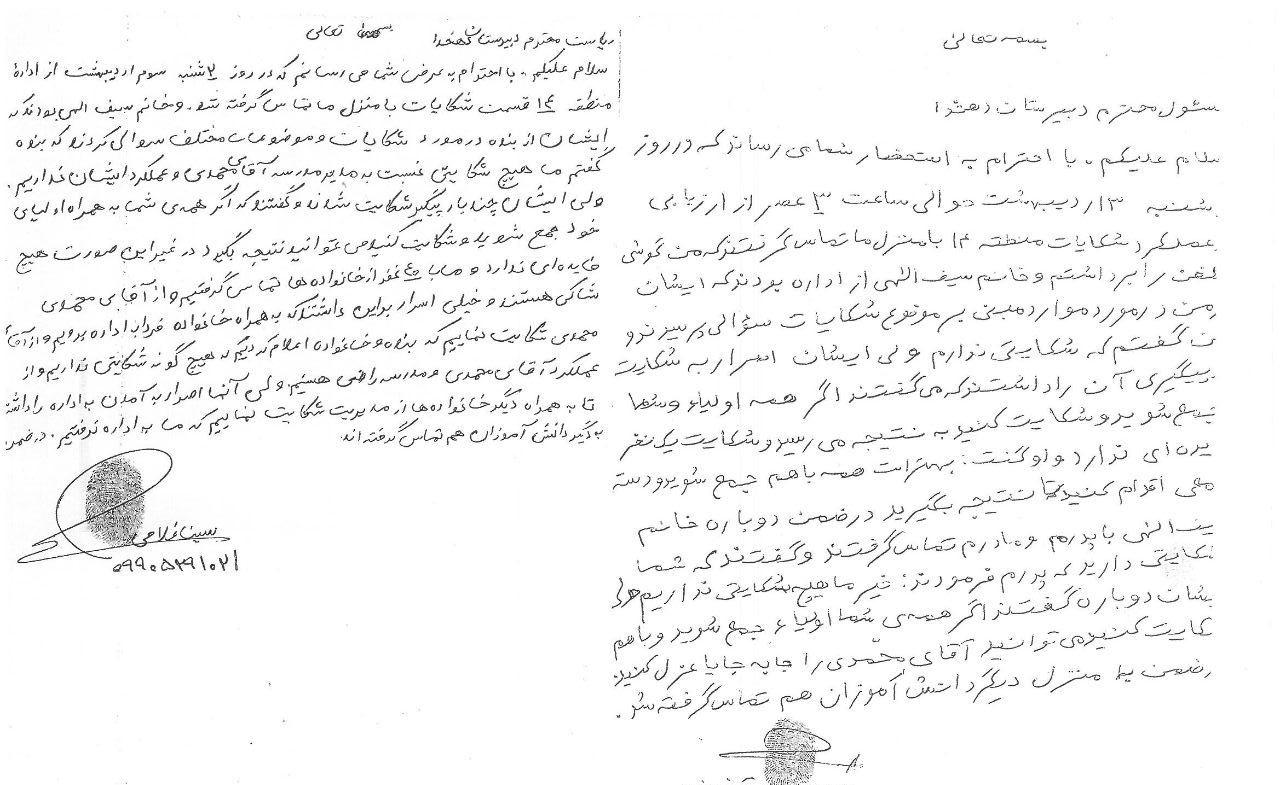 بسمه تعالی
مسئول محترم دبیرستان دهخدا
سلام علیکم، با احترام به استحضار شما می رساند که در روز
شنبه ۳ اردیبهشت حوالی ساعت ۳ عصر از ارزیابی
عملکرد شکایات منطقه ۱۴ با منزل ما تماس گرفتند که من گوشی
تلفن را برداشتم و خانم سیف اللهی از اداره بودند که ایشان
از من در مورد موارد مبنی بر موضوع شکایات سؤالی پرسیدند و
من گفتم که شکایتی ندارم ولی ایشان اسرار به شکایت
پیگیری آن را داشتند که می گفتند اگر همه اولیاء و شما
جمع شوید و شکایت کنید به نتیجه می رسد و شکایت یک نفر
فایده ای ندارد و او گفت: بهتر است همه باهم جمع شوید و دسته
جمعی اقدام کنید تا نتیجه بگیرید در ضمن دوباره خانم
سیف اللهی با پدرم و مادرم تماس گرفتند و گفتند که شما
شکایتی دارید که پدرم فرمودند: خیر ما هیچ شکایتی نداریم ولی
ایشان دوباره گفتند اگر همه ی شما اولیاء جمع شوید و باهم
شکایت کنید می توانید آقای محمدی را جابه جا یا عزل کنید.
در ضمن به منزل دیگر دانش آموزان هم تماس گرفته شد.
بسمه تعالی
ریاست محترم دبیرستان دهخدا
سلام علیکم، با احترام به عرض شما می رسانم که در روز ۳ شنبه سوم اردیبهشت از اداره
منطقه ۱۴ قسمت شکایات با منزل ما تماس گرفته شد. و خانم سیف الهی بودند که
ایشان از بنده در مورد شکایات و موضوعات مختلف سوالی کردند که بنده
گفتم ما هیچ شکایتی نسبت به مدیر مدرسه آقای محمدی و عملکرد ایشان نداریم.
ولی ایشان چند بار پیگیر شکایت شدند و گفتند که اگر همه ی شما به همراه اولیای
خود جمع شوید و شکایت کنید می توانید نتیجه بگیرد در غیر این صورت هیچ
فایده ای ندارد و ما با نفر از خانواده ها تماس گرفتیم و از آقای محمدی
شاکی هستند و خیلی اسرار براین داشتند که به همراه خانواده فردا به اداره برویم و از آقای
محمدی شکایت نماییم که بنده و خانواده اعلام کردیم که هیچ گونه شکایتی نداریم و از
عملکرد آقای محمدی و مدرسه راضی هستیم. ولی آنها اصرار به آمدن به اداره را داشتند
تا به همراه دیگر خانواده ها از مدیریت شکایت نماییم که ما به اداره نرفتیم. در ضمن
به دیگر دانش آموزان هم تماس گرفته اند.
سینا فلاحی
۰۹۹۰۵۲۹۱۰۲۱